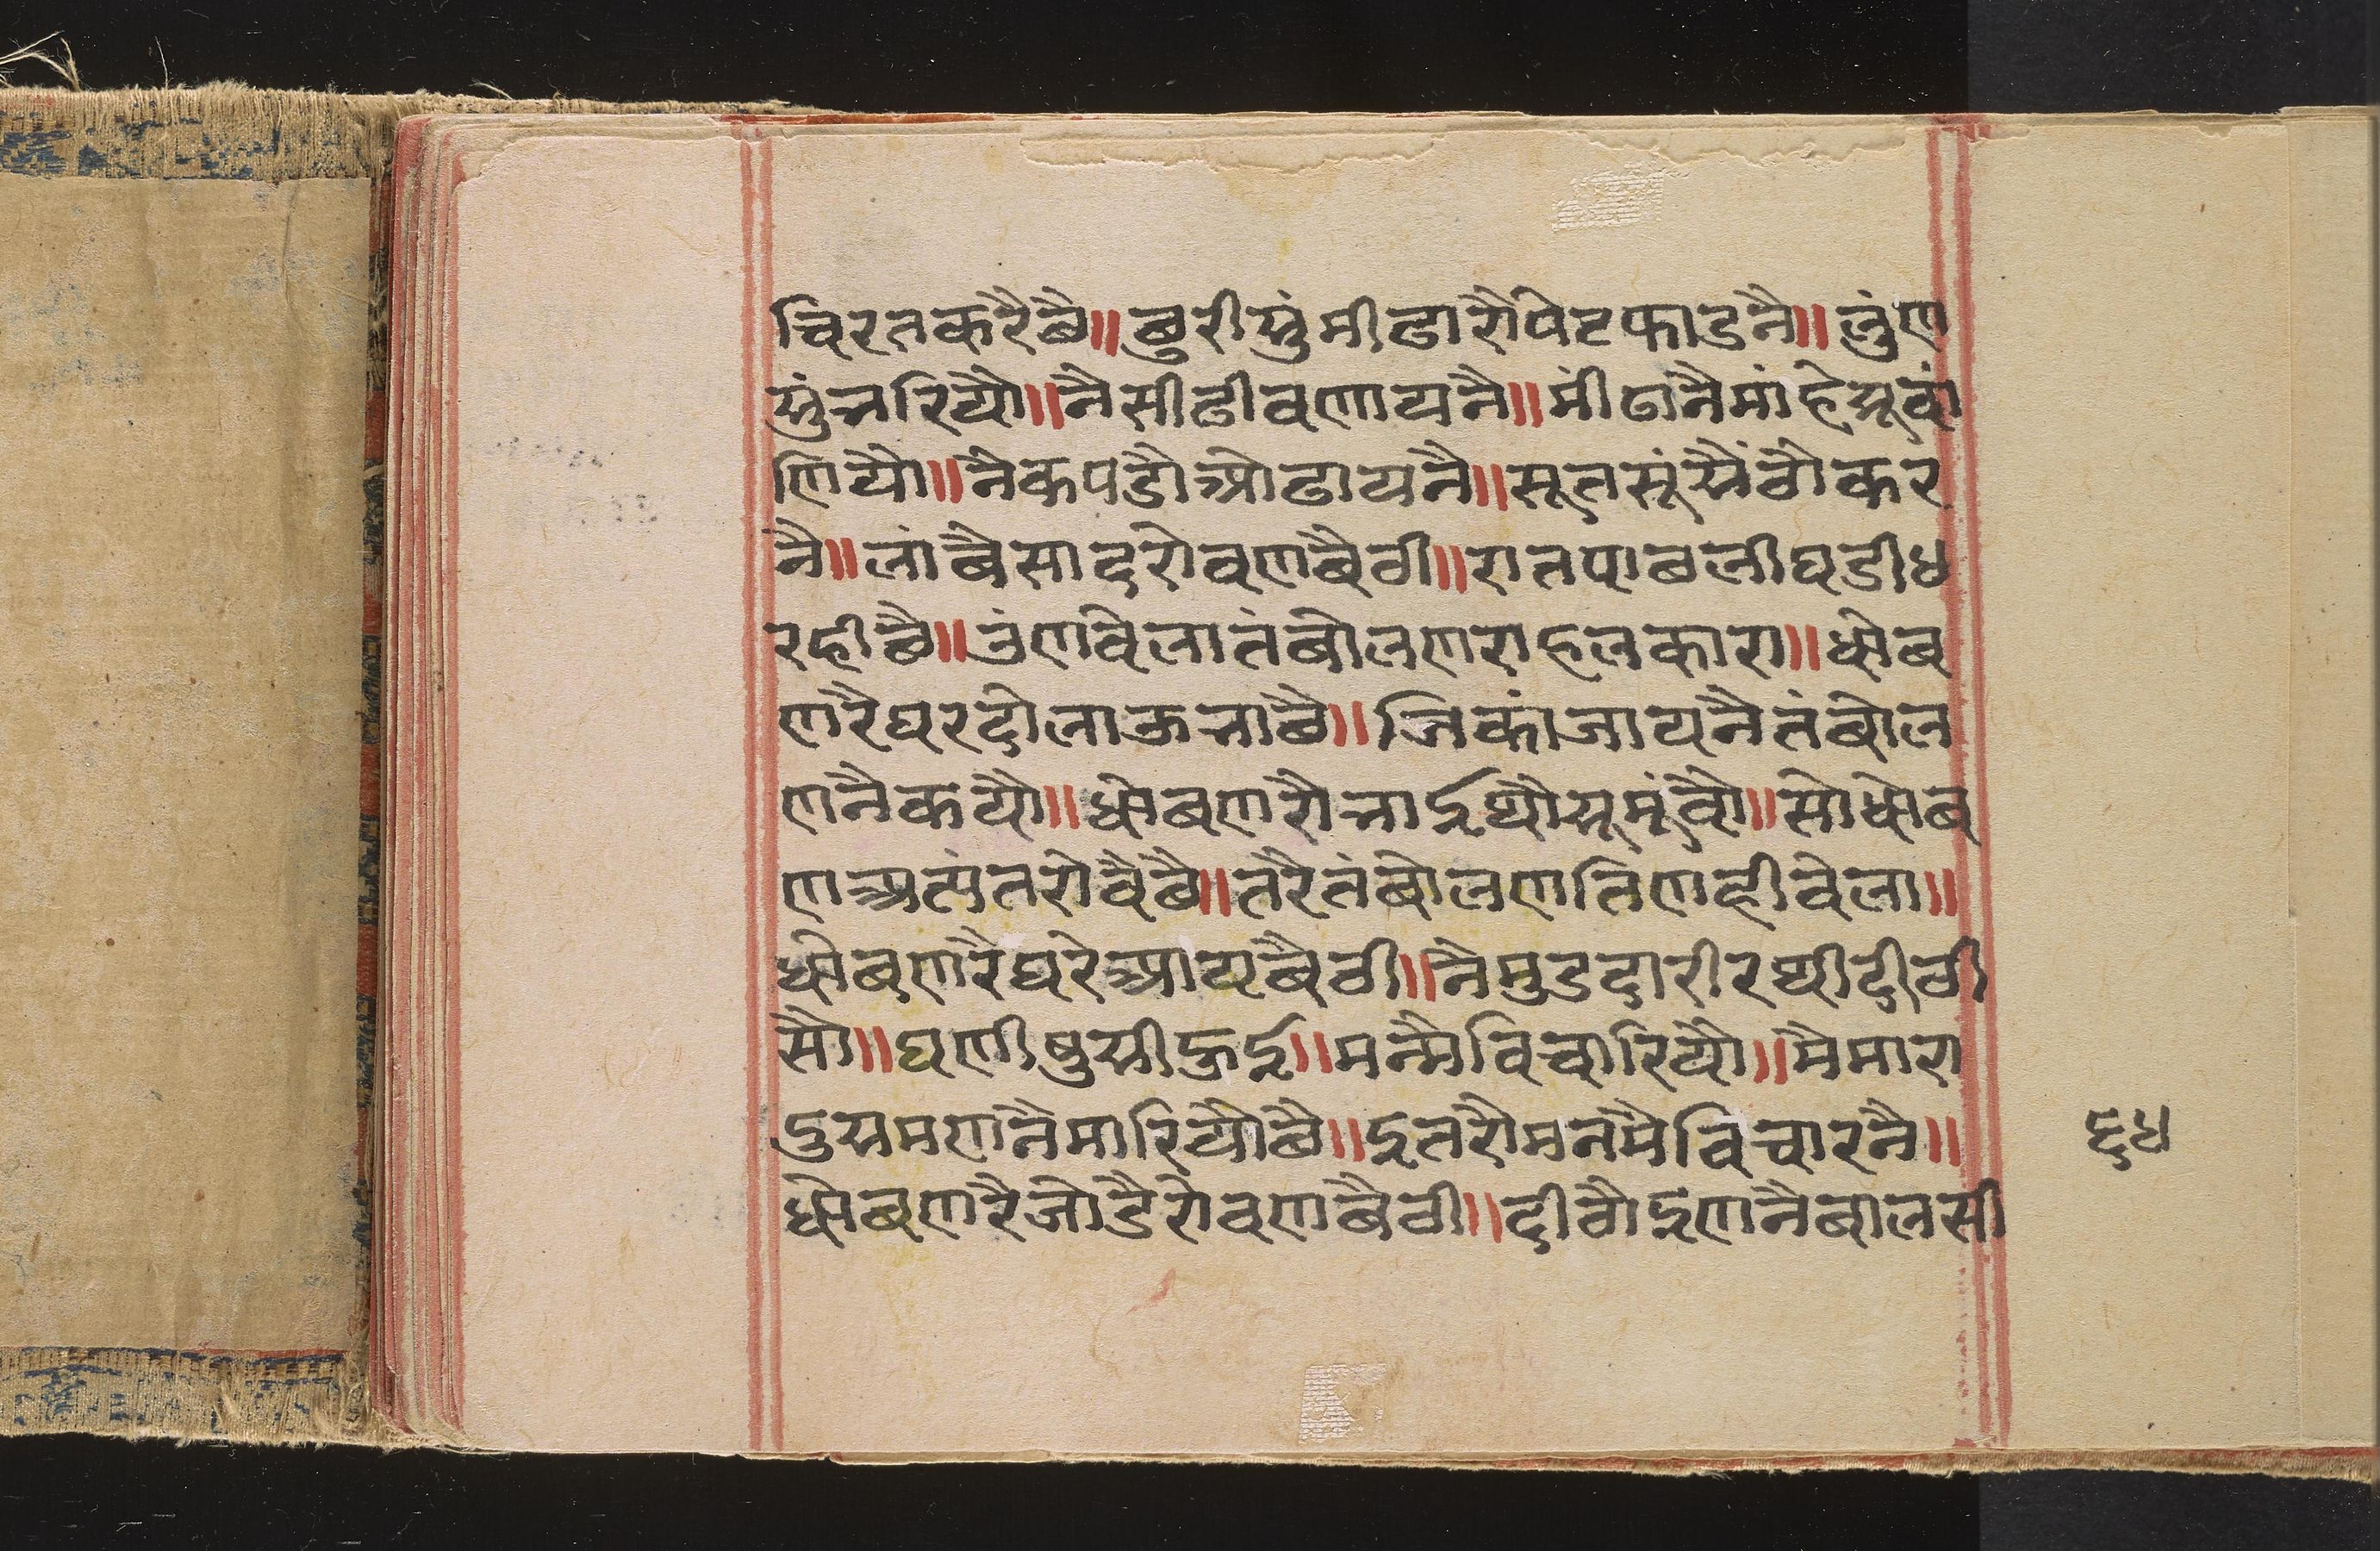 चिरतकरैछै॥छुरीसुंमीढारौपेटफाडनै॥लुंण
सुंभरियौ॥नैसीढीवणायनै॥मींढानैमांहेसूवां
णियौ॥नैकपडौओढायनै॥सूतसूंसैंठौकर
नै॥लांबैसादरोवणबैठी॥रातपाछलीघडी४
रहीछै॥उंणवेलातंबोलणराहलकारा॥धोब
णरैघरदोलाऊभाछै॥जिकांजायनैतंबोल
णनैकयौ॥धोबणरौभाईथौसूमूंवौ॥सोधोब
णअत्यंतरोवैछै॥तरैतंबोलणतिणहीवेला॥
धोबणरैघरेआयबैठी॥नैमुडदारीरथीदीठी
सौ॥घणीषुसीहुई॥मनमैविचारियौ॥मैमारा
दुसमणनैमारियौछै॥इतरौमनमैविचारनै॥
धोबणरैजोडैरोवणबैठी॥दीठौइणनैबालसी
६४